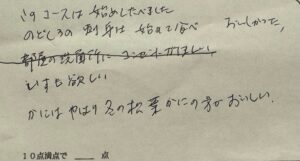 このコースは始めしたべました
のどくろの刺身は始めて食べ おいしかった,
部屋の洗面所に コンセントがほしい
いすも欲しい
かにはやはり冬の松葉かにの方がおいしい.
10点満点で ＿＿ 点